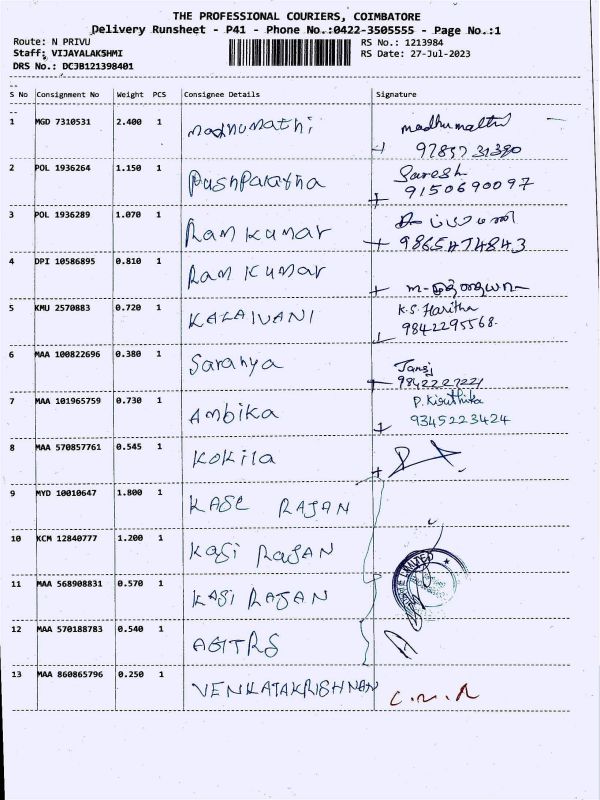 THE PROFESSIONAL COURIERS, COIMBATORE
Delivery Runsheet - P41 - Phone No.:0422-3505555 - Page No.:1
Route: N PRIVU RS No.: 1213984
Staff: VIJAYALAKSHMI RS Date: 27-Jul-2023
DRS No.: DCJB121398401
S No Consignment No Weight PCS Consignee Details Signature
1 MGD 7310531 2.400 1 Madhumathi madhumathi
2 POL 1936264 1.150 1 Pushparatha Suresh
9150690097
3 POL 1936289 1.070 1 Ram Kumar
9865474843
4 DPI 10586895 0.810 1 Ram Kumar
5 KMU 2570883 0.720 1 KALAIVANI K.S. Haritha
9842295568.
6 MAA 100822696 0.380 1 Saranya
7 MAA 101965759 0.730 1 Ambika P. Kiruthika
9345223424
8 MAA 570857761 0.545 1 Kokila
9 MYD 10010647 1.800 1 KASI RAJAN
10 KCM 12840777 1.200 1 Kasi RAJAN
11 MAA 568908831 0.570 1 KASI RAJAN
12 MAA 570188783 0.540 1
13 MAA 860865796 0.250 1 VENKATAKRISHNAN